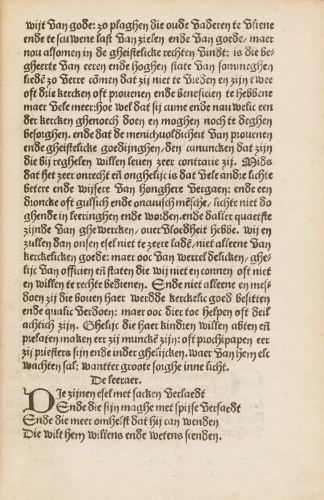 wijt van gode: zo plaghen die oude vaderen te vliene
ende te scuwene last van zielen ende van goede, maer
nou alsomen in de gheistelicke rechten vindt: is die be-
gheerte van eeren ende hoghen state van sommeghen
liedē zo verre comen dat zij niet te vreden en zijn twee
oft drie kercken oft provenen ende beneficien te hebbene
maer vele meer: hoe wel dat sij cume ende nauwelic een
der kercken ghenoech doen en moghen noch te deghen
besorghen, ende dat de menichvuldicheit van provenen
ende gheistelicke goedinghen, den canuncken dat zijn
die bij reghelen willen leven zeer contrarie zij. Mids
dat het zeer onrecht en onghelijc is dat vele andre lichte
betere ende wijsere van honghere vergaen: ende een
droncke oft gulsich ende oncuusch mēsche, lichte niet do
ghende in leeringhen ende worden, ende dalier quaetste
zijnde van ghewercken, overvloedheit hebbe. wij en
zullen dan onsen esel niet te zeere ladē, niet alleene van
kerckelicken goede: maer ooc van werreldelicken, ghe-
lijc van officien en staten die wij niet en connen oft niet
en willen te rechte bedienen. Ende niet alleene en mes-
doen zij die boven haer werdde kerckelic goed besitten
ende qualic verdoen: maer ooc dier toe helpen oft deil
achtich zijn. Ghelijc die haer kindren willen abten en
prelaten maken eer zij muncke zijn: oft prochipapen eer
zij priesters sijn ende in der ghelijcken. waer van hem elc
wachten sal: want ter groote sorghe inne licht.
De leeraer.
Die zijnen esel met sacken verlaedt
Ende die sijn maghe met spijse versaedt
Ende die meer omhelst dat hij can wenden
Die wilt hem willens ende wetens scenden.